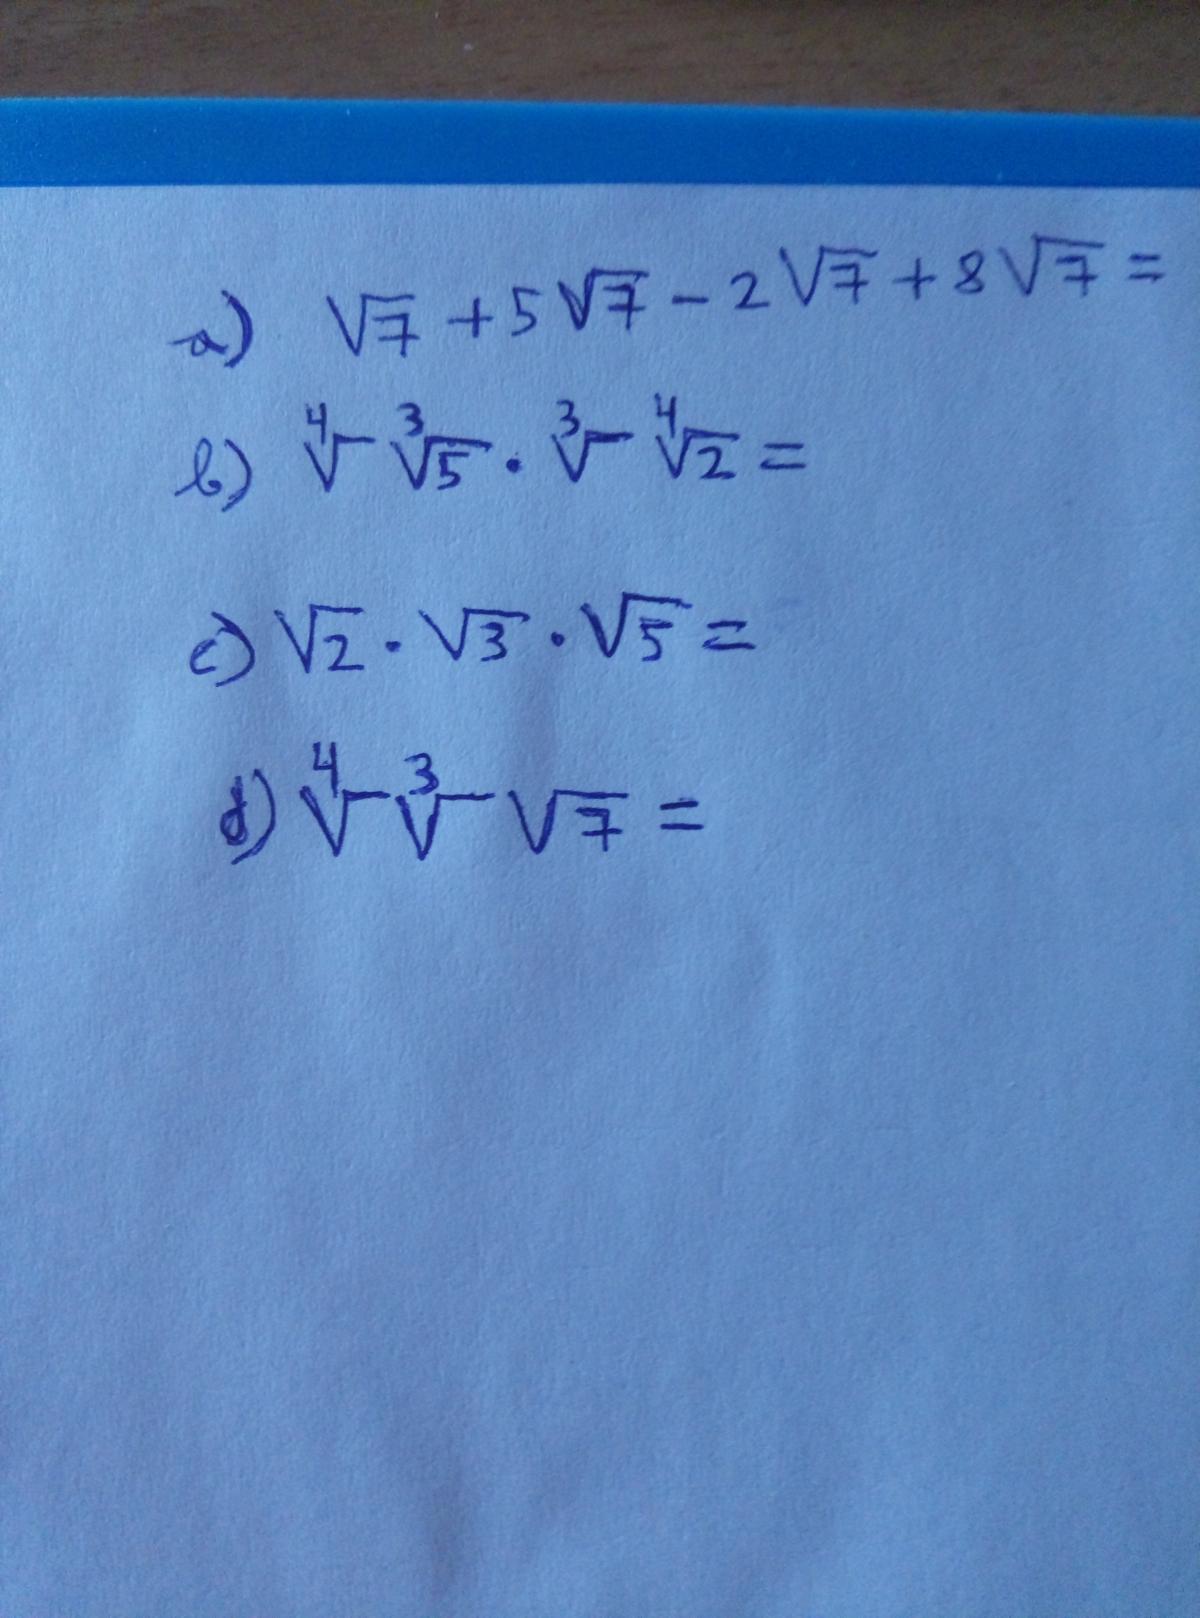 a) √7 + 5√7 - 2√7 + 8√7 =
b) ⁴√ ³√5 · ³√ ⁴√2 =
c) √2 · √3 · √5 =
d) ⁴√ ³√ √7 =